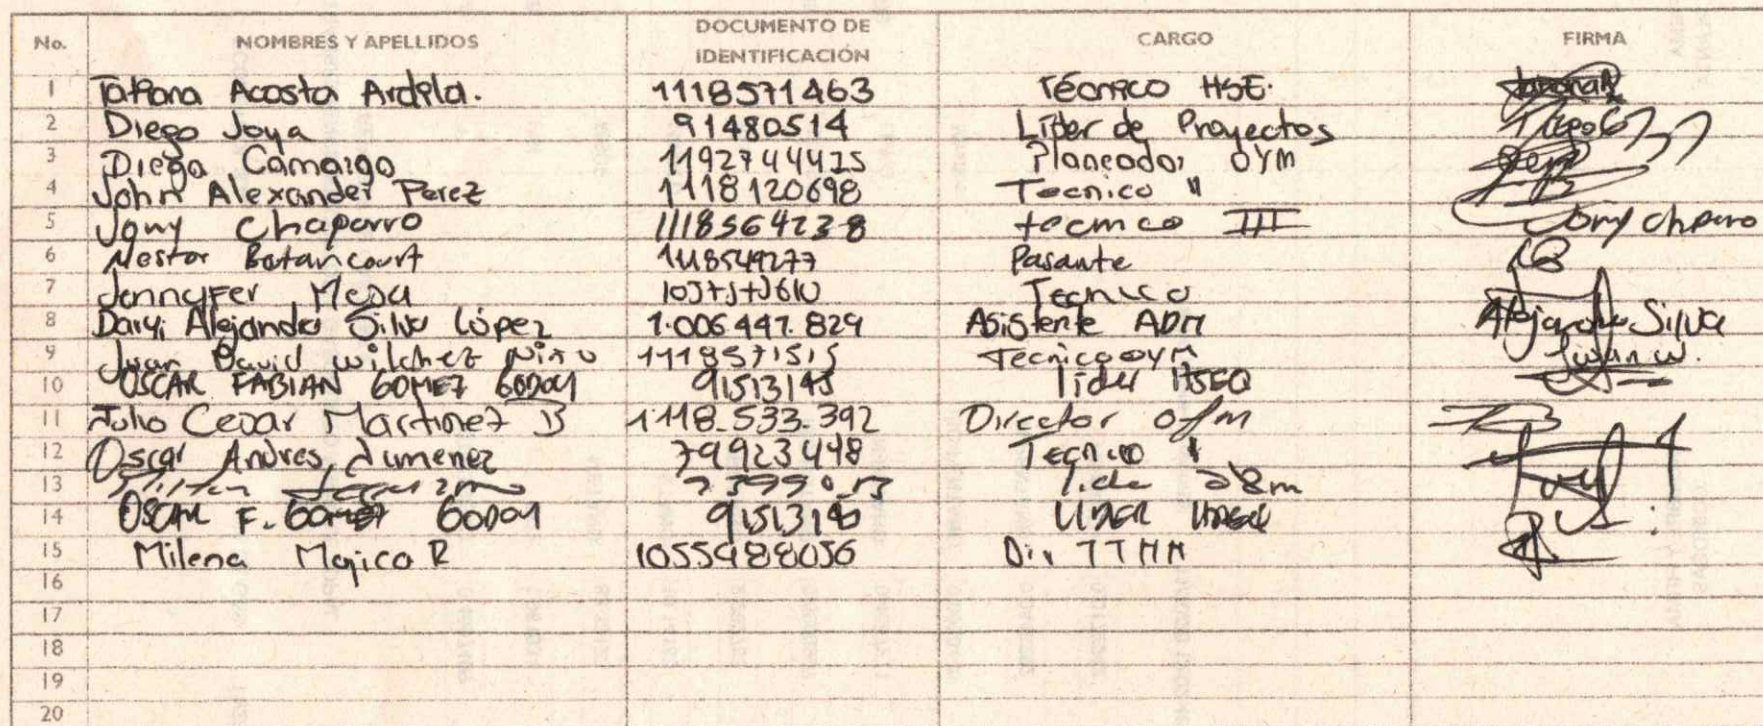 No. NOMBRES Y APELLIDOS DOCUMENTO DE IDENTIFICACIÓN CARGO FIRMA
1 Tatiana Acosta Ardila. 1118571463 Técnico HSE.
2 Diego Joya 91480514 Lider de Proyectos
3 Diego Camargo 1192744425 Planeador OYM
4 John Alexander Perez 1118120698 Tecnico II
5 Jony Chaparro 1118564238 tecnico III Jony Chparo
6 Nestor Betancourt 1118549277 Pasante
7 Jennyfer Mesa Tecnico
8 Dayi Alejandra Silva López 1.006.447.829 Asistente ADM Alejandra Silva
9 Juan David Wilchez Niño 1118571515 Tecnico OYM Juan W.
10 OSCAR FABIAN GOMEZ GODOY lider HSEQ
11 Julio Cesar Martinez B 1.118.533.392 Director OYM
12 Oscar Andres Jimenez 79923448 Tecnico I
13
14 OSCAR F. GOMEZ GODOY LIDER
15 Milena Mojica R 1055988056 Dir TTHH
16
17
18
19
20